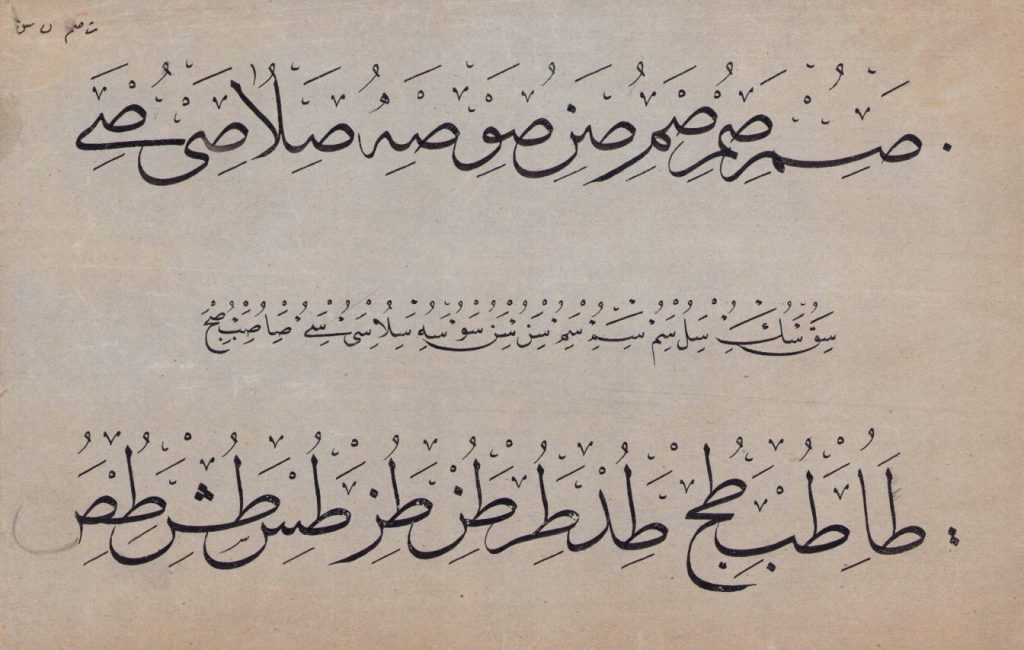 صم صم صم صن صو صه صلا صى صے
سق سك سل سم سم سم سن سن سو سه سلا سى سے صا صب صح
طا طب طح طد طر طز طز طس طش طص